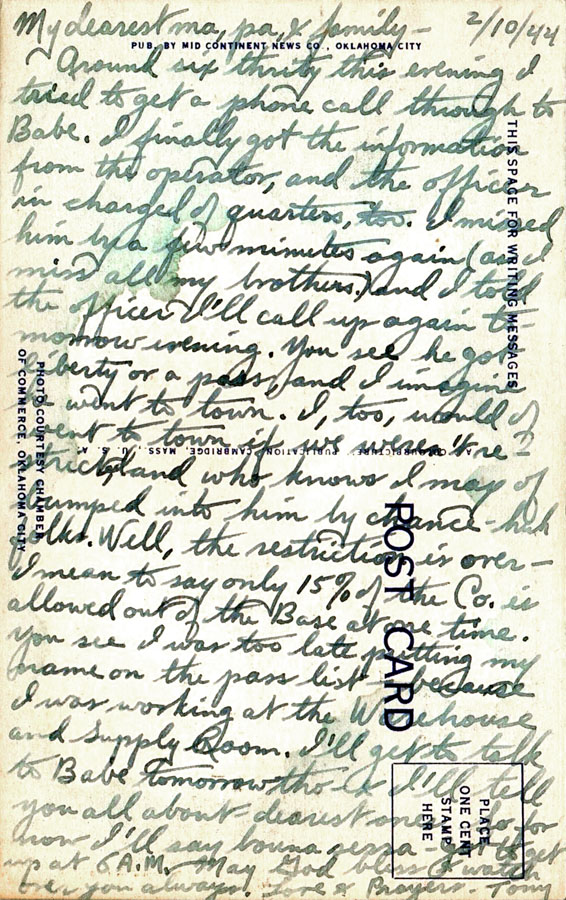 My dearest ma, pa, & family - 2/10/44
PUB. BY MID CONTINENT NEWS CO., OKLAHOMA CITY
Around six thrity this evening I
tried to get a phone call through to
Babe. I finally got the information
from the operator, and the officer
in charged of quarters, too. I missed
him by a few minutes again (as I
miss all my brothers.) and I told
the officer I'll call up again to-
morrow evening. You see he got
liberty or a pass, and I imagine
he went to town. I, too, would of
went to town if we weren't re-
stricted and who knows I may of
bumped into him by chance - huh
folks. Well, the restriction is over -
I mean to say only 15% of the Co. is
allowed out of the Base at one time.
You see I was too late putting my
name on the pass list - because
I was working at the Warehouse
and Supply Room. I'll get to talk
to Babe tomorrow tho - & I'll tell
you all about dearest ones. So, for
now I'll say bouna serra - got to get
up at 6 A.M. May God bless & watch
over you always. Love & Prayers - Tony
THIS SPACE FOR WRITING MESSAGES
PHOTO COURTESY CHAMBER
OF COMMERCE, OKLAHOMA CITY
A "COLOURPICTURE" PUBLICATION, CAMBRIDGE, MASS., U. S. A.
POST CARD
PLACE
ONE CENT
STAMP
HERE